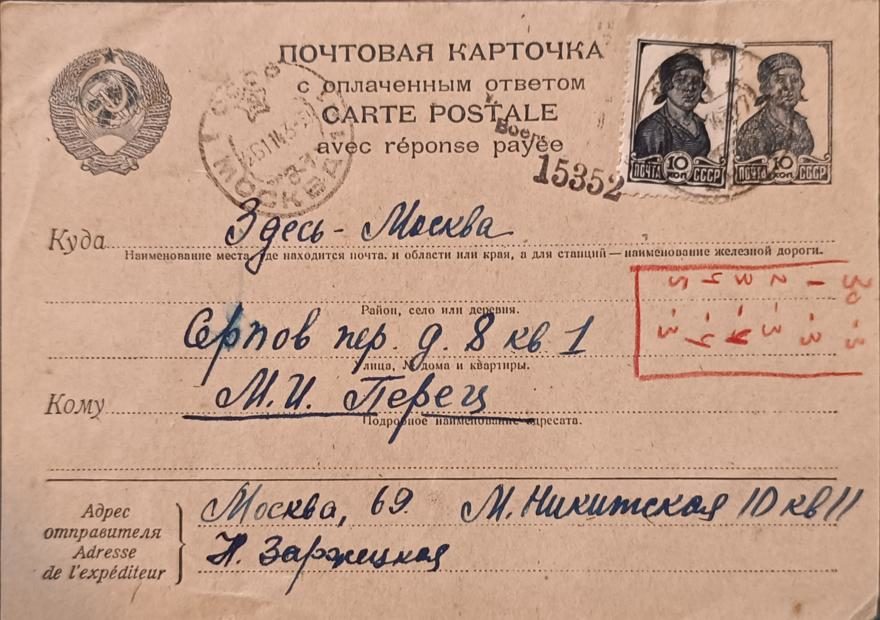 ПОЧТОВАЯ КАРТОЧКА
с оплаченным ответом
CARTE POSTALE
avec réponse payée
МОСКВА
15352
ПОЧТА 10 КОП. СССР
ПОЧТА 10 КОП. СССР
Куда Здесь - Москва
Наименование места, где находится почта, и области или края, а для станций — наименование железной дороги.
Район, село или деревня.
Серпов пер. д. 8 кв 1
Улица, № дома и квартиры.
Кому М.И. Перец
Подробное наименование адресата.
30 - 3
1 - 3
2 - 3
3 - 4
4 - 4
5 - 3
Адрес отправителя
Adresse de l'expéditeur
Москва, 69 М. Никитская 10 кв 11
Н. Заржецкая